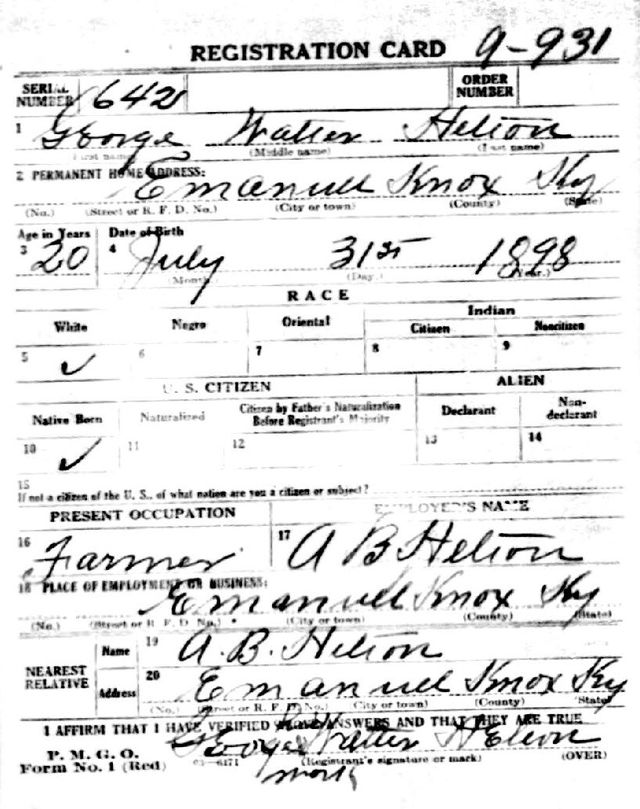 REGISTRATION CARD 9-931
SERIAL NUMBER 642 ORDER NUMBER
1 George Walter Helton
(First name) (Middle name) (Last name)
2 PERMANENT HOME ADDRESS:
Emanuel Knox Ky
(No.) (Street or R. F. D. No.) (City or town) (County) (State)
Age in Years Date of Birth
3 20 4 July 31st 1898
(Month) (Day.) (Year.)
RACE
White Negro Oriental Indian
Citizen Noncitizen
5 ✓ 6 7 8 9
U. S. CITIZEN ALIEN
Native Born Naturalized Citizen by Father's Naturalization Before Registrant's Majority Declarant Non-declarant
10 ✓ 11 12 13 14
15
If not a citizen of the U. S., of what nation are you a citizen or subject?
PRESENT OCCUPATION EMPLOYER'S NAME
16 Farmer 17 A B Helton
18 PLACE OF EMPLOYMENT OR BUSINESS:
Emanuel Knox Ky
(No.) (Street or R. F. D. No.) (City or town) (County) (State)
NEAREST RELATIVE Name 19 A. B. Helton
Address 20 Emanuel Knox Ky
(No.) (Street or R. F. D. No.) (City or town) (County) (State)
I AFFIRM THAT I HAVE VERIFIED ABOVE ANSWERS AND THAT THEY ARE TRUE
P. M. G. O.
Form No. 1 (Red) 03-6171 George his Walter Helton
(Registrant's signature or mark) (OVER)
mark